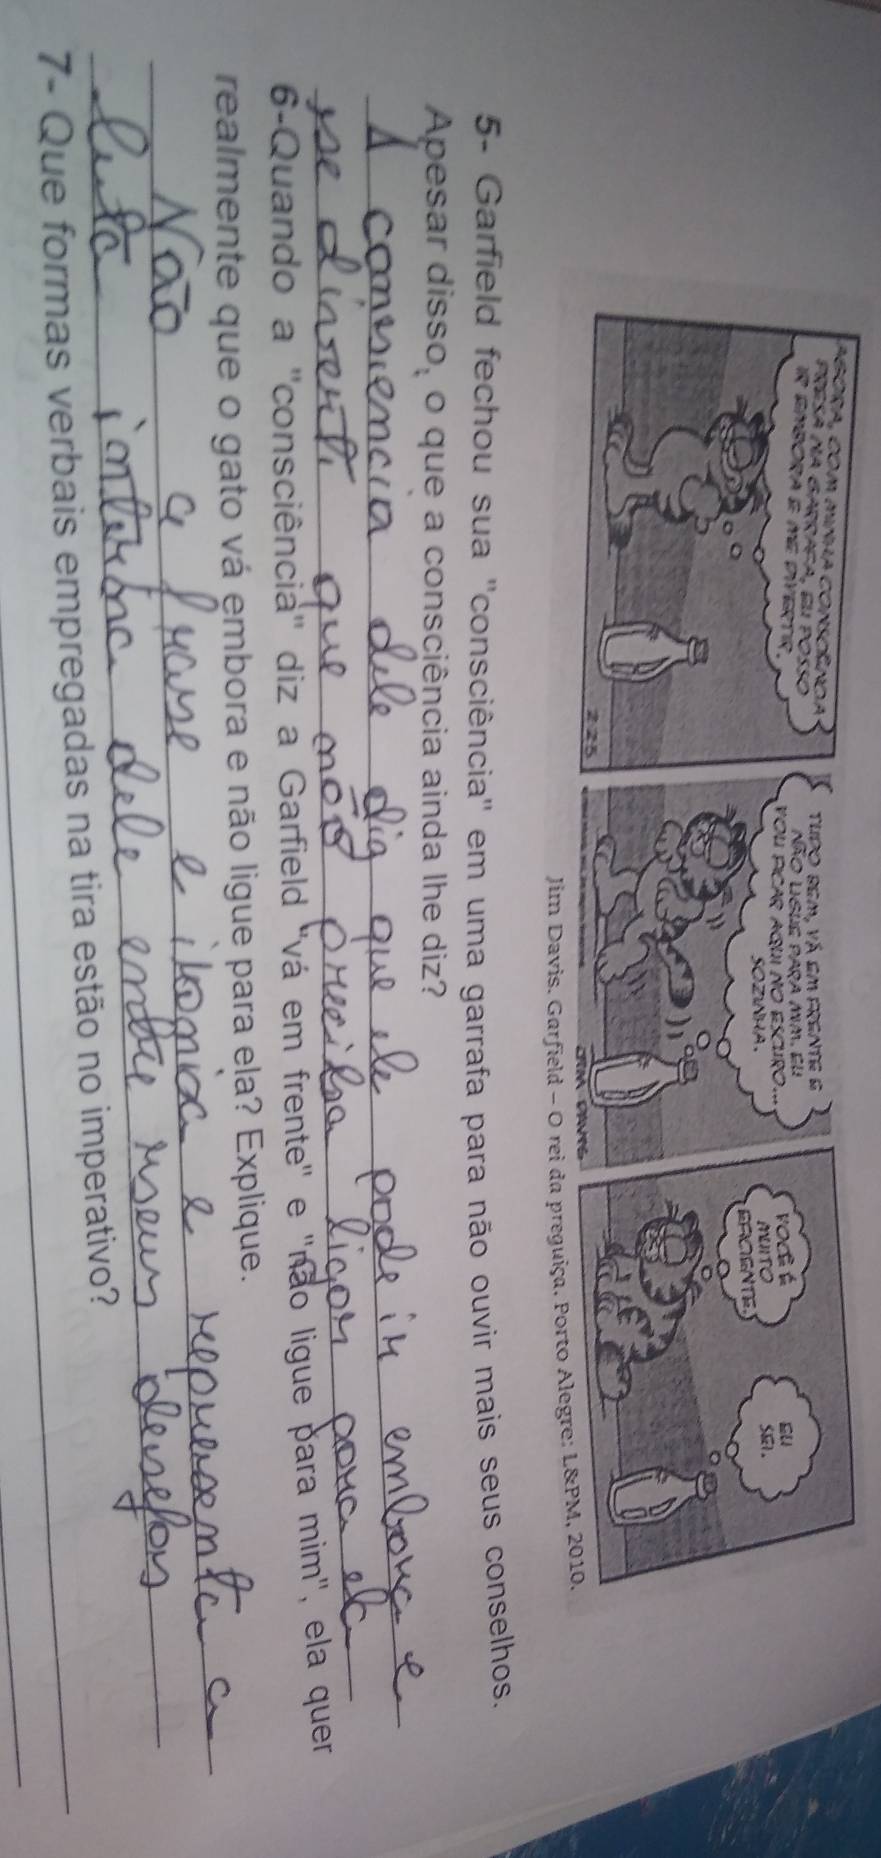 AGORA, COM MINHA CONSCIÊNCIA
PRESA NA GARRAFA, EU POSSO
IR EMBORA E ME DIVERTIR.
2-25
TUDO BEM, VÁ EM FRENTE E
NÃO LIGUE PARA MIM. EU
VOU FICAR AQUI NO ESCURO...
SOZINHA.
JIM DAVIS
VOCÊ É
MUITO
EFICIENTE.
EU
SEI.
Jim Davis. Garfield – O rei da preguiça. Porto Alegre: L&PM, 2010.
5- Garfield fechou sua "consciência" em uma garrafa para não ouvir mais seus conselhos.
Apesar disso, o que a consciência ainda lhe diz?
A consiencia dele diz que ele pode ir embora e
se diverti que não precisa ligar para ela
6-Quando a "consciência" diz a Garfield "vá em frente" e "não ligue para mim", ela quer
realmente que o gato vá embora e não ligue para ela? Explique.
Não a frase e ironica e representa a
luta interna dele entre seus desejos
7- Que formas verbais empregadas na tira estão no imperativo?